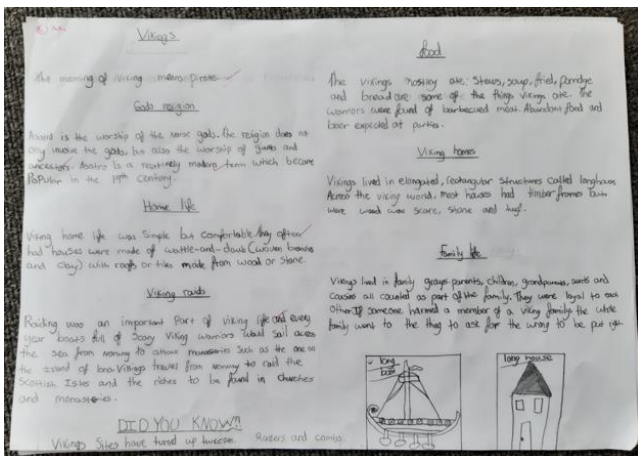 Vikings
The meaning of Viking means pirate
Gods religion
Asatro is the worship of the norse gods. The religion does not
only involve the gods, but also the worship of giants and
ancestors. Asatro is a relatively modern term which became
Popular in the 19th Century.
Home life
Viking home life was simple but comfortable they often
had houses were made of wattle-and-daub (woven branches
and clay) with roofs or tiles made from wood or stone.
Viking raids
Raiding was an important Part of viking life and every
year boats full of Scary Viking warriors would sail across
the sea from norway to attack monasteries Such as the one on
the island of Iona. Vikings travel from norway to raid the
Scottish Isles and the riches to be found in Churches
and monasteries.
DID YOU KNOW!!
Vikings Sites have turned up tweezers. Razors and combs.
food
The vikings mostley ate: Stews, soup, fried, porridge
and bread are some of the things vikings ate. The
warriors were found of barbecued meat. Abundant food and
beer expected at parties.
Viking homes
Vikings lived in elongated, rectangular structures called longhouses
Across the viking world, most houses had timber frames but
were wood was scare, stone and turf.
Family life
Vikings lived in family groups parents, children, grandparents, aunts and
cousins all counted as part of the family. They were loyal to each
other. If someone harmed a member of a viking family the whole
family went to the thing to ask for the wrong to be put right
long
boat
long house